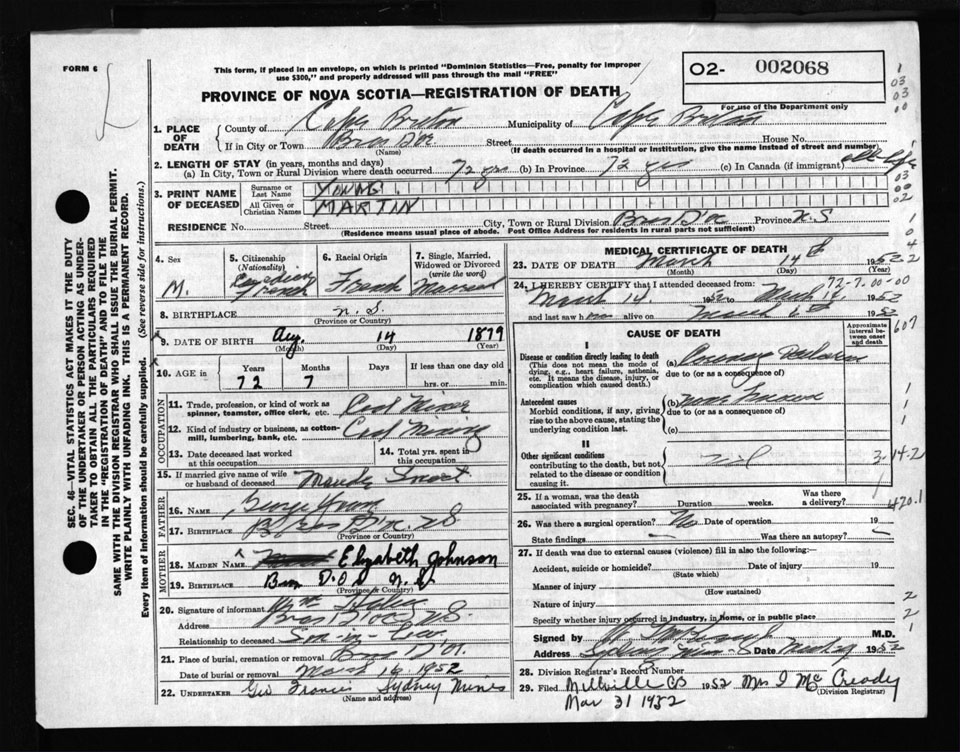 FORM 6
This form, if placed in an envelope, on which is printed "Dominion Statistics—Free, penalty for improper
use $300," and properly addressed will pass through the mail "FREE"
O2- 002068
For use of the Department only
PROVINCE OF NOVA SCOTIA—REGISTRATION OF DEATH
1. PLACE OF DEATH
County of Cape Breton Municipality of Cape Breton
If in City or Town Bras Doc Street House No.
(Name) (If death occurred in a hospital or Institution, give the name instead of street and number)
2. LENGTH OF STAY (in years, months and days)
(a) In City, Town or Rural Division where death occurred 72 yrs (b) In Province 72 yrs (c) In Canada (if immigrant) all life
3. PRINT NAME OF DECEASED
Surname or Last Name YOUNG
All Given or Christian Names MARTIN
RESIDENCE No. Street City, Town or Rural Division Bras Doc Province N.S
(Residence means usual place of abode. Post Office Address for residents in rural parts not sufficient)
4. Sex M.
5. Citizenship (Nationality) Canadian French
6. Racial Origin French
7. Single, Married, Widowed or Divorced (write the word) Married
8. BIRTHPLACE N.S.
(Province or Country)
9. DATE OF BIRTH Aug. 14 1879
(Month) (Day) (Year)
10. AGE in Years Months Days If less than one day old
72 7 hrs. or min.
OCCUPATION
11. Trade, profession, or kind of work as spinner, teamster, office clerk, etc. Coal Miner
12. Kind of industry or business, as cotton-mill, lumbering, bank, etc. Coal Mining
13. Date deceased last worked at this occupation
14. Total yrs. spent in this occupation
15. If married give name of wife or husband of deceased Maude
FATHER
16. NAME George Young
17. BIRTHPLACE Bras Doc N.S
(Province or Country)
MOTHER
18. MAIDEN NAME Elizabeth Johnson
19. BIRTHPLACE Bras D'Or N.S
(Province or Country)
20. Signature of informant Wm
Address Bras Doc N.S
Relationship to deceased Son-in-law
21. Place of burial, cremation or removal Bras D'Or
Date of burial or removal March 16 1952
22. UNDERTAKER Geo Francis Sydney Mines
(Name and address)
MEDICAL CERTIFICATE OF DEATH
23. DATE OF DEATH March 14th 1952
(Month) (Day) (Year)
24. I HEREBY CERTIFY that I attended deceased from: 72-7-00-00
March 14. 1952 to March 14 1952
and last saw him alive on March 1952
CAUSE OF DEATH
Approximate interval between onset and death
I
Disease or condition directly leading to death
(This does not mean the mode of dying, e.g., heart failure, asthenia, etc. It means the disease, injury, or complication which caused death.)
(a) Coronary
due to (or as a consequence of)
Antecedent causes
Morbid conditions, if any, giving rise to the above cause, stating the underlying condition last.
(b) none known
due to (or as a consequence of)
(c)
II
Other significant conditions
contributing to the death, but not related to the disease or condition causing it.
nil
3-14-2
420.1
25. If a woman, was the death associated with pregnancy? Duration weeks. Was there a delivery?
26. Was there a surgical operation? No Date of operation 19
State findings Was there an autopsy?
27. If death was due to external causes (violence) fill in also the following:—
Accident, suicide or homicide? Date of injury 19
(State which)
Manner of injury
(How sustained)
Nature of injury
Specify whether injury occurred in industry, in home, or in public place
Signed by M.D.
Address Sydney Mines Date 1952
28. Division Registrar's Record Number
29. Filed Millville CB 1952 Mrs I McCready
Mar 31 1952 (Division Registrar)
SEC. 46—VITAL STATISTICS ACT MAKES IT THE DUTY
OF THE UNDERTAKER OR PERSON ACTING AS UNDER-
TAKER TO OBTAIN ALL THE PARTICULARS REQUIRED
IN THE "REGISTRATION OF DEATH" AND TO FILE THE
SAME WITH THE DIVISION REGISTRAR WHO SHALL ISSUE THE BURIAL PERMIT.
WRITE PLAINLY WITH UNFADING INK. THIS IS A PERMANENT RECORD.
Every item of information should be carefully supplied. (See reverse side for instructions.)